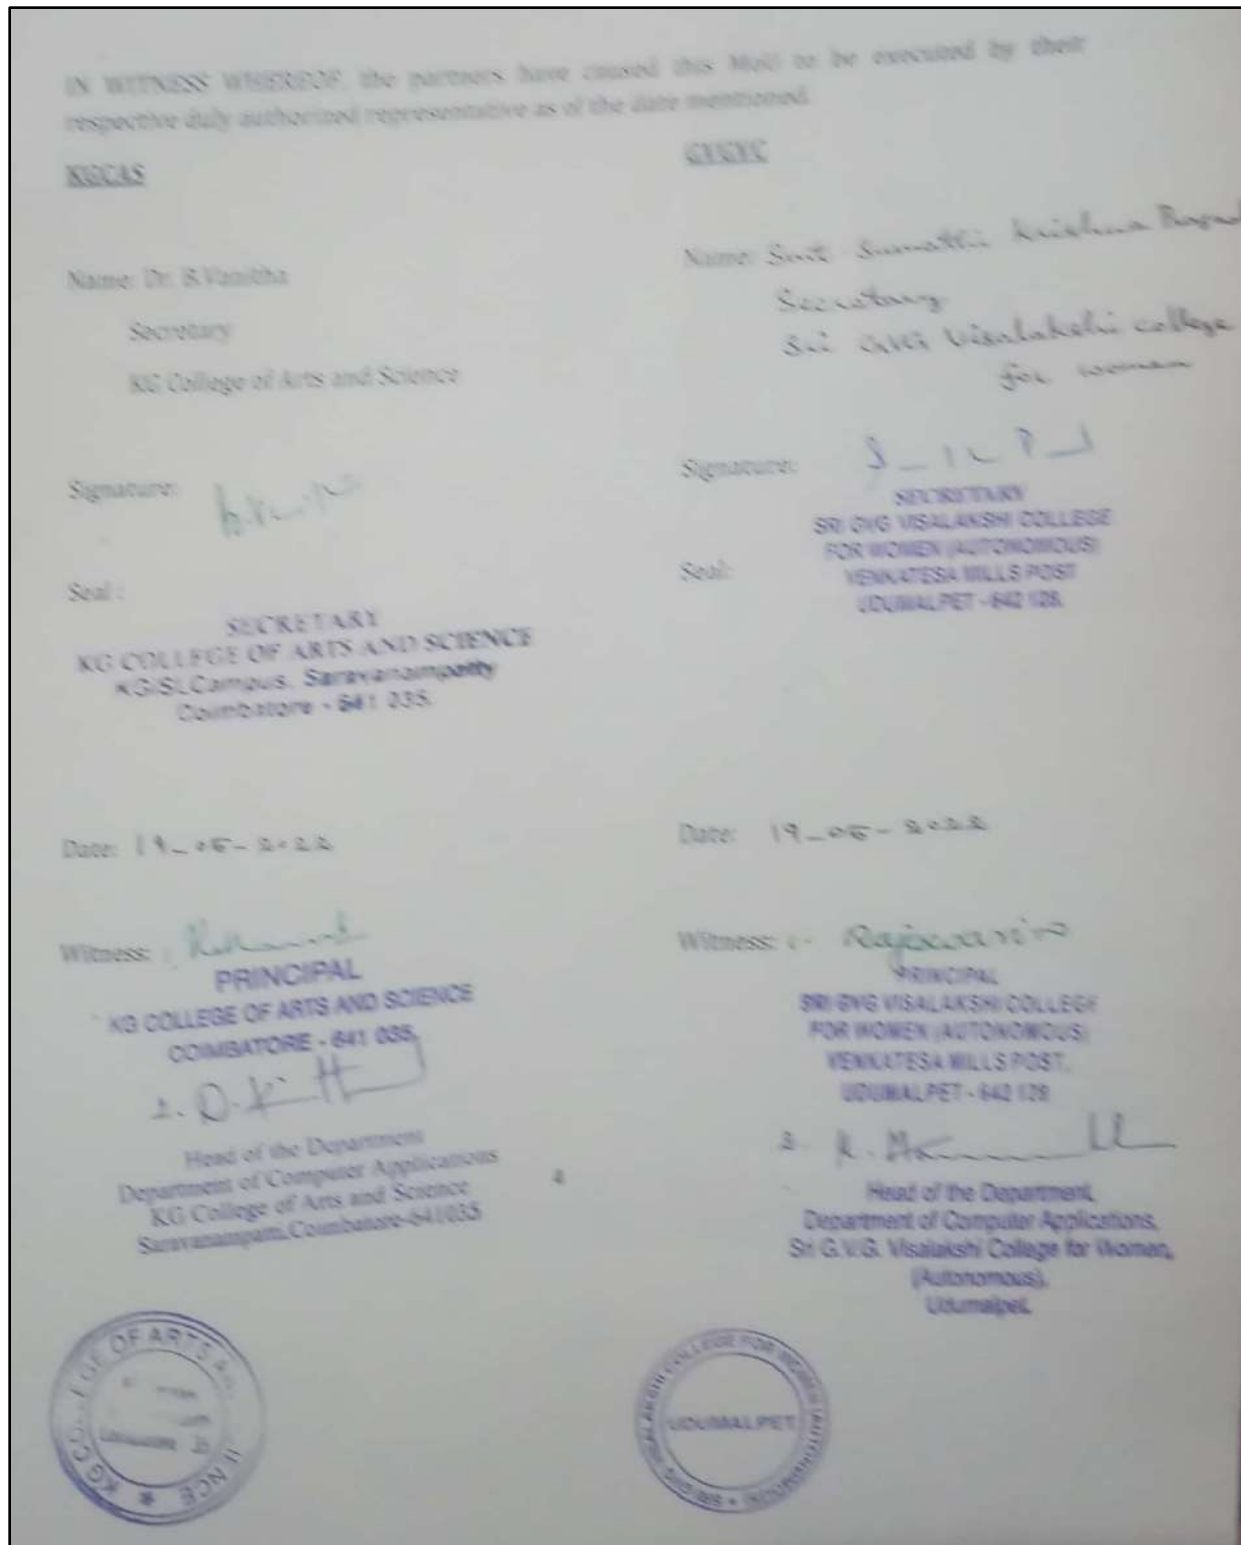 IN WITNESS WHEREOF, the partners have caused this MoU to be executed by their
respective duly authorized representative as of the date mentioned.
KGCAS
Name: Dr. B.Vanitha
Secretary
KG College of Arts and Science
Signature:
Seal :
SECRETARY
KG COLLEGE OF ARTS AND SCIENCE
KGiSL Campus, Saravanampatty
Coimbatore - 641 035.
Date: 19-05-2022
Witness:
PRINCIPAL
KG COLLEGE OF ARTS AND SCIENCE
COIMBATORE - 641 035.
2.
Head of the Department
Department of Computer Applications
KG College of Arts and Science
Saravanampatti, Coimbatore-641035
KG COLLEGE OF ARTS
GVGVC
Name: Smt Sumathi Krishna Prasad
Secretary
Sri GVG Visalakshi college
for women
Signature:
SECRETARY
SRI GVG VISALAKSHI COLLEGE
FOR WOMEN (AUTONOMOUS)
VENKATESA MILLS POST
UDUMALPET - 642 128.
Seal:
Date: 19-05-2022
Witness: 1.
PRINCIPAL
SRI GVG VISALAKSHI COLLEGE
FOR WOMEN (AUTONOMOUS)
VENKATESA MILLS POST,
UDUMALPET - 642 128
Head of the Department,
Department of Computer Applications,
Sri G.V.G. Visalakshi College for Women,
(Autonomous),
Udumalpet.
SRI GVG VISALAKSHI COLLEGE FOR WOMEN (AUTONOMOUS)
UDUMALPET
4